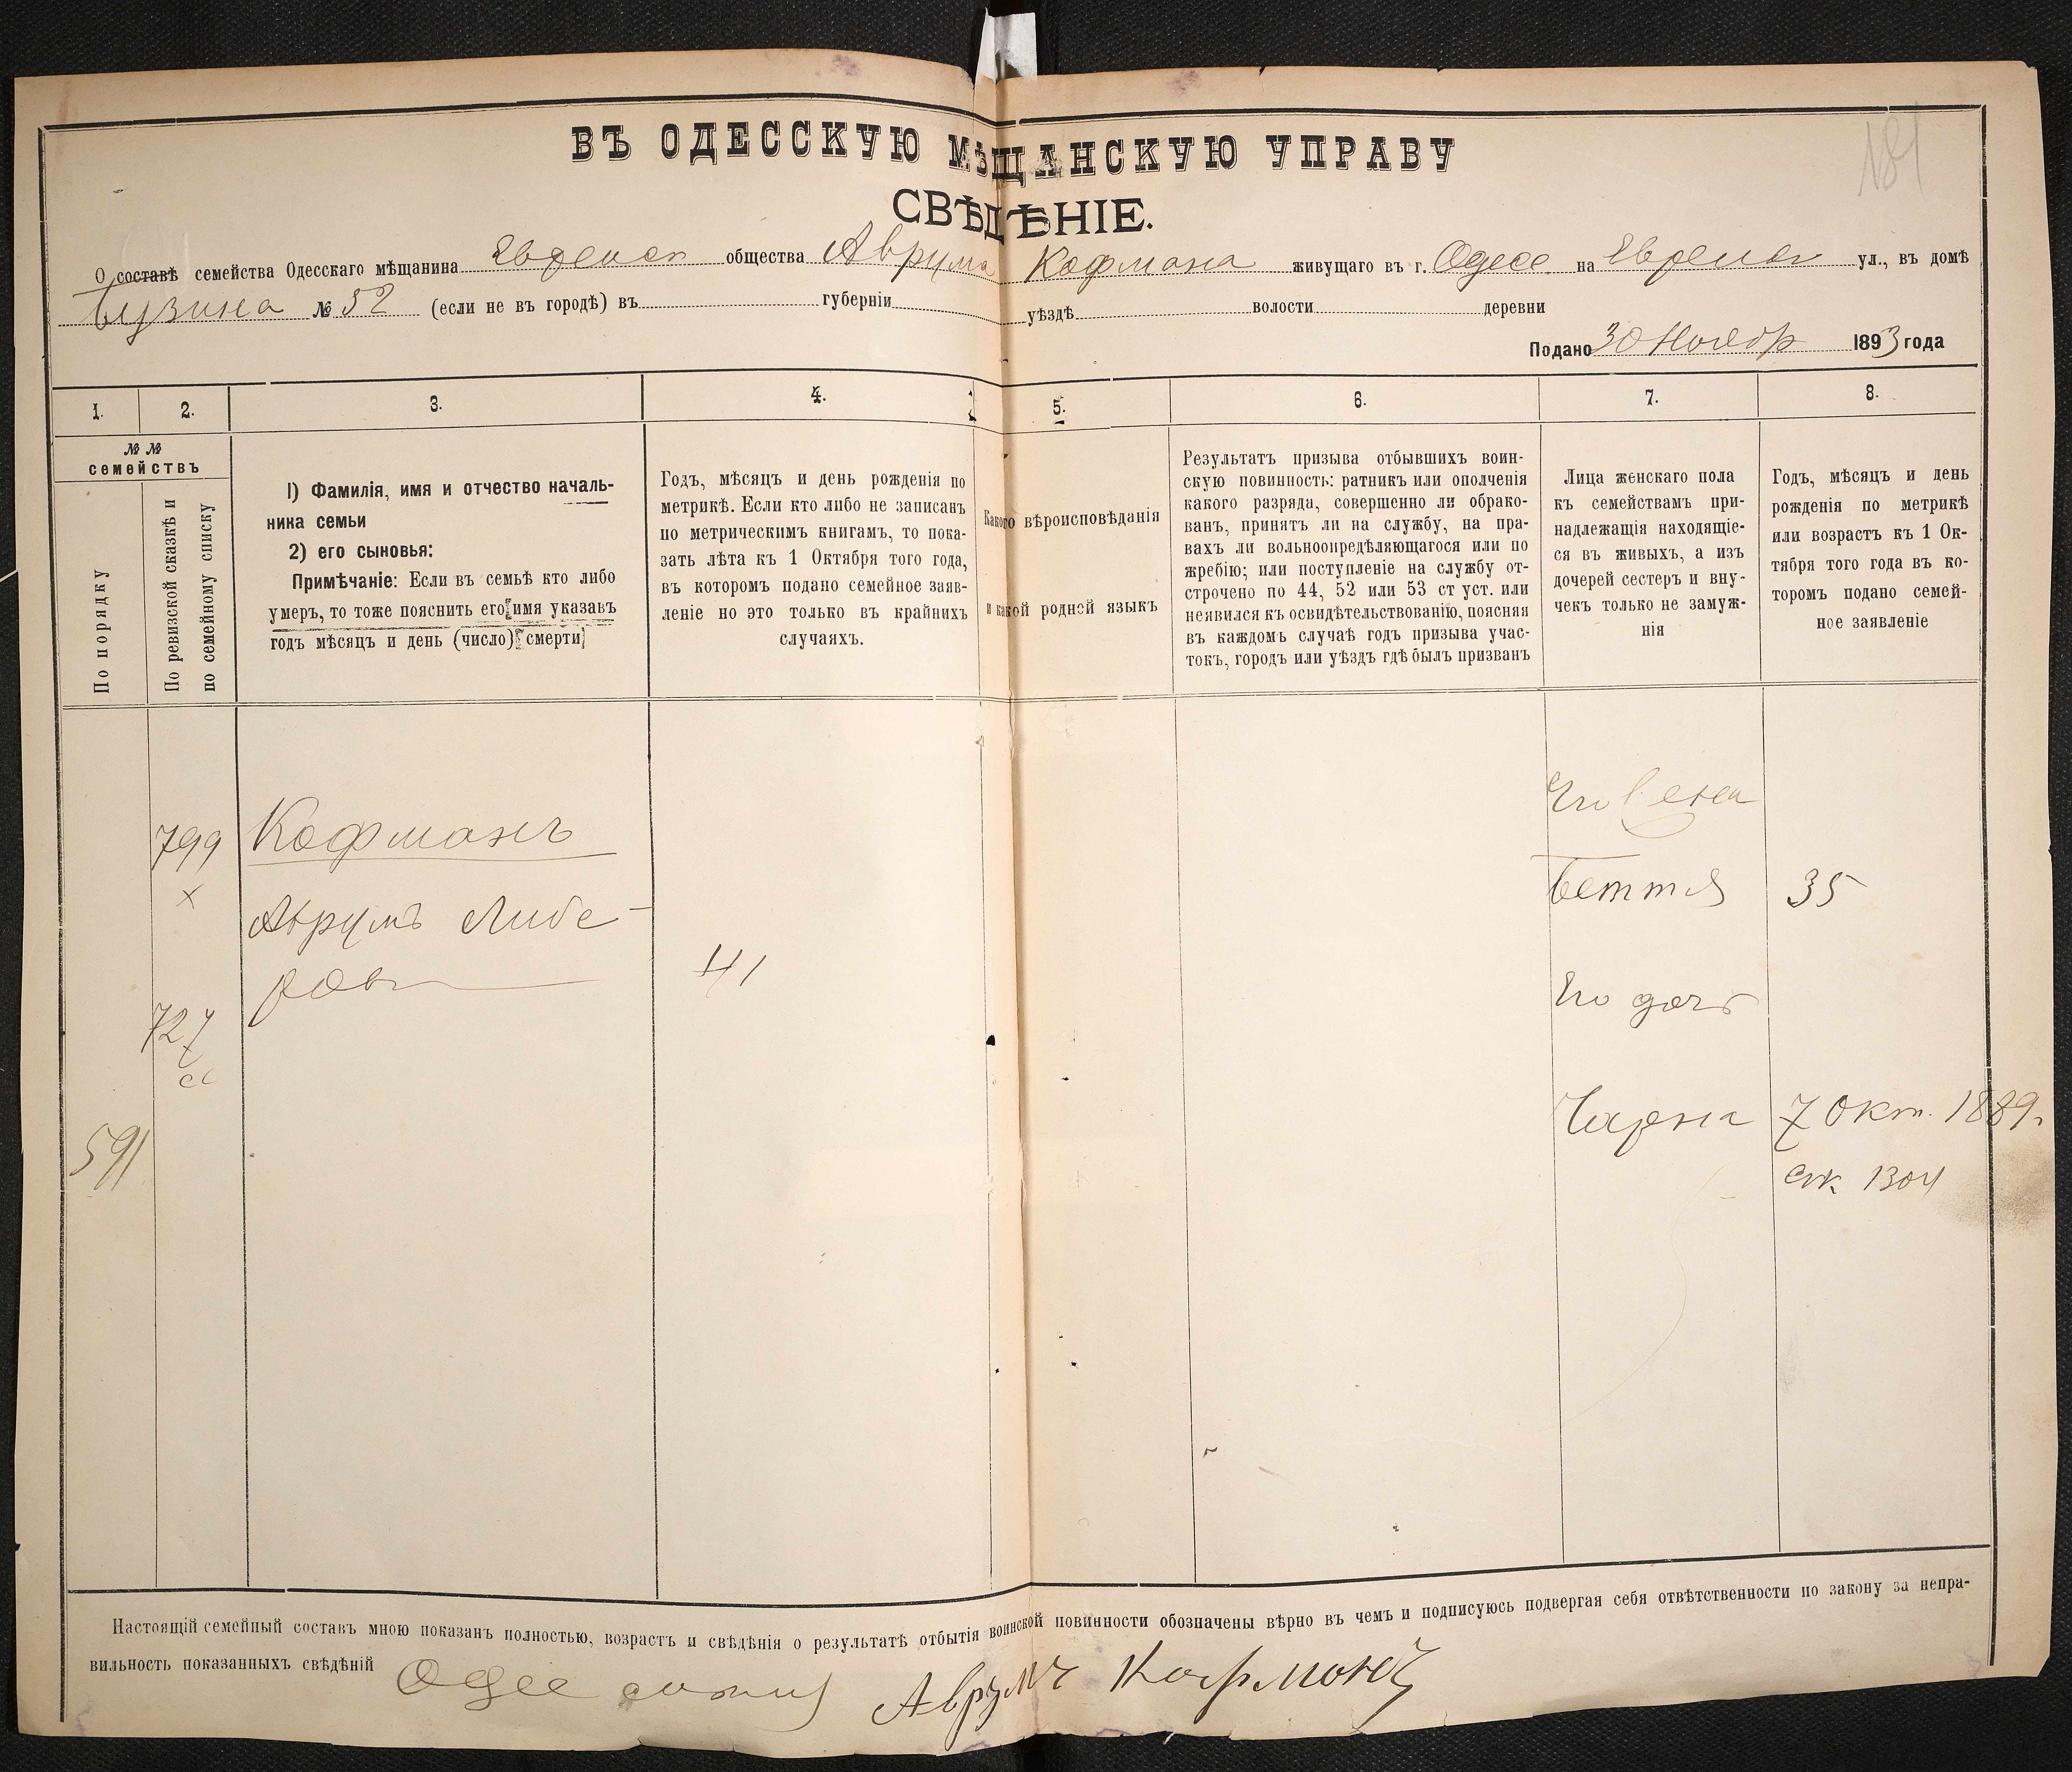 ВЪ ОДЕССКУЮ МѢЩАНСКУЮ УПРАВУ
СВѢДѢНІЕ.
О составѣ семейства Одесскаго мѣщанина Еврейск общества Аврума Кофмана живущаго въ г. Одесс на Еврейск ул., въ домѣ
Бузина № 52 (если не въ городѣ) въ губерніи уѣздѣ волости деревни
Подано 30 Ноябр 1893 года
1. 2. 3. 4. 5. 6. 7. 8.
№ №
семействъ
По порядку
По ревизской сказкѣ и
по семейному списку
1) Фамилія, имя и отчество началь-
ника семьи
2) его сыновья:
Примѣчаніе: Если въ семьѣ кто либо
умеръ, то тоже пояснить его имя указавъ
годъ мѣсяцъ и день (число) смерти
Годъ, мѣсяцъ и день рожденія по
метрикѣ. Если кто либо не записанъ
по метрическимъ книгамъ, то пока-
зать лѣта къ 1 Октября того года,
въ которомъ подано семейное заяв-
леніе но это только въ крайнихъ
случаяхъ.
Какого вѣроисповѣданія
и какой родной языкъ
Результатъ призыва отбывшихъ воин-
скую повинность: ратникъ или ополченія
какого разряда, совершенно ли обрако-
ванъ, принятъ ли на службу, на пра-
вахъ ли вольноопредѣляющагося или по
жребію; или поступленіе на службу от-
строчено по 44, 52 или 53 ст уст. или
неявился къ освидѣтельствованію, поясняя
въ каждомъ случаѣ годъ призыва учас-
токъ, городъ или уѣздъ гдѣ былъ призванъ
Лица женскаго пола
къ семействамъ при-
надлежащія находящіе-
ся въ живыхъ, а изъ
дочерей сестеръ и вну-
чекъ только не замуж-
нія
Годъ, мѣсяцъ и день
рожденія по метрикѣ
или возрастъ къ 1 Ок-
тября того года въ ко-
торомъ подано семей-
ное заявленіе
799
х
727
сс
591
Кофманъ
Аврумъ Либе-
ров
41
Его жена
Беття 35
Его дочь
Чарна 7 Окт. 1889г.
ск. 1304
Настоящій семейный составъ мною показанъ полностью, возрастъ и свѣдѣнія о результатѣ отбытія воинской повинности обозначены вѣрно въ чемъ и подписуюсь подвергая себя отвѣтственности по закону за непра-
вильность показанныхъ свѣдѣній Одес Аврумъ Кофмонъ